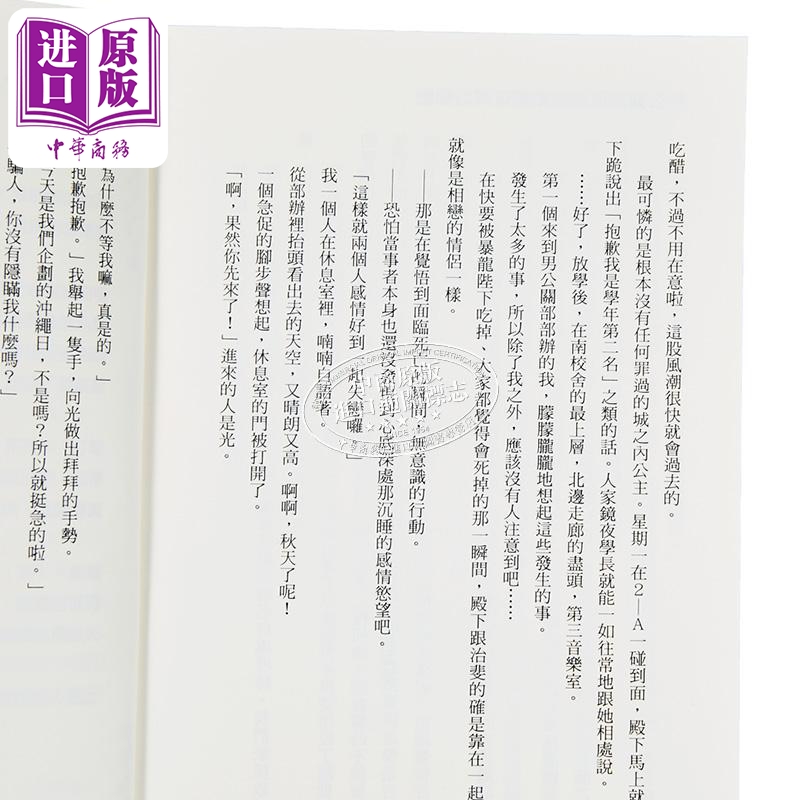 原版
进口
中華商務
吃醋,不過不用在意啦,這股風潮很快就會過去的。
最可憐的是根本沒有任何罪過的城之內公主。星期一在2—A一碰到面,殿下馬上就
下跪說出「抱歉我是學年第二名」之類的話。人家鏡夜學長就能一如往常地跟她相處說。
……好了,放學後,在南校舍的最上層,北邊走廊的盡頭,第三音樂室。
第一個來到男公關部部辦的我,朦朦朧朧地想起這些發生的事。
發生了太多的事,所以除了我之外,應該沒有人注意到吧……
在快要被暴龍陛下吃掉、大家都覺得會死掉的那一瞬間,殿下跟治斐的確是靠在一起
就像是相戀的情侶一樣。
——那是在覺悟到面臨死亡的瞬間,無意識的行動。
——恐怕當事者本身也還沒發覺到心底深處那沉睡的感情慾望吧。
「這樣就兩個人感情好到一起失戀囉。」
我一個人在休息室裡,喃喃自語著。
從部辦裡抬頭看出去的天空,又晴朗又高。啊啊,秋天了呢!
一個急促的腳步聲想起,休息室的門被打開了。
「啊,果然你先來了!」進來的人是光。
為什麼不等我嘛,真是的。」
抱歉抱歉。」我舉起一隻手,向光做出拜拜的手勢。
今天是我們企劃的沖繩日,不是嗎?所以就挺急的啦。」
騙人,你沒有隱瞞我什麼嗎?」